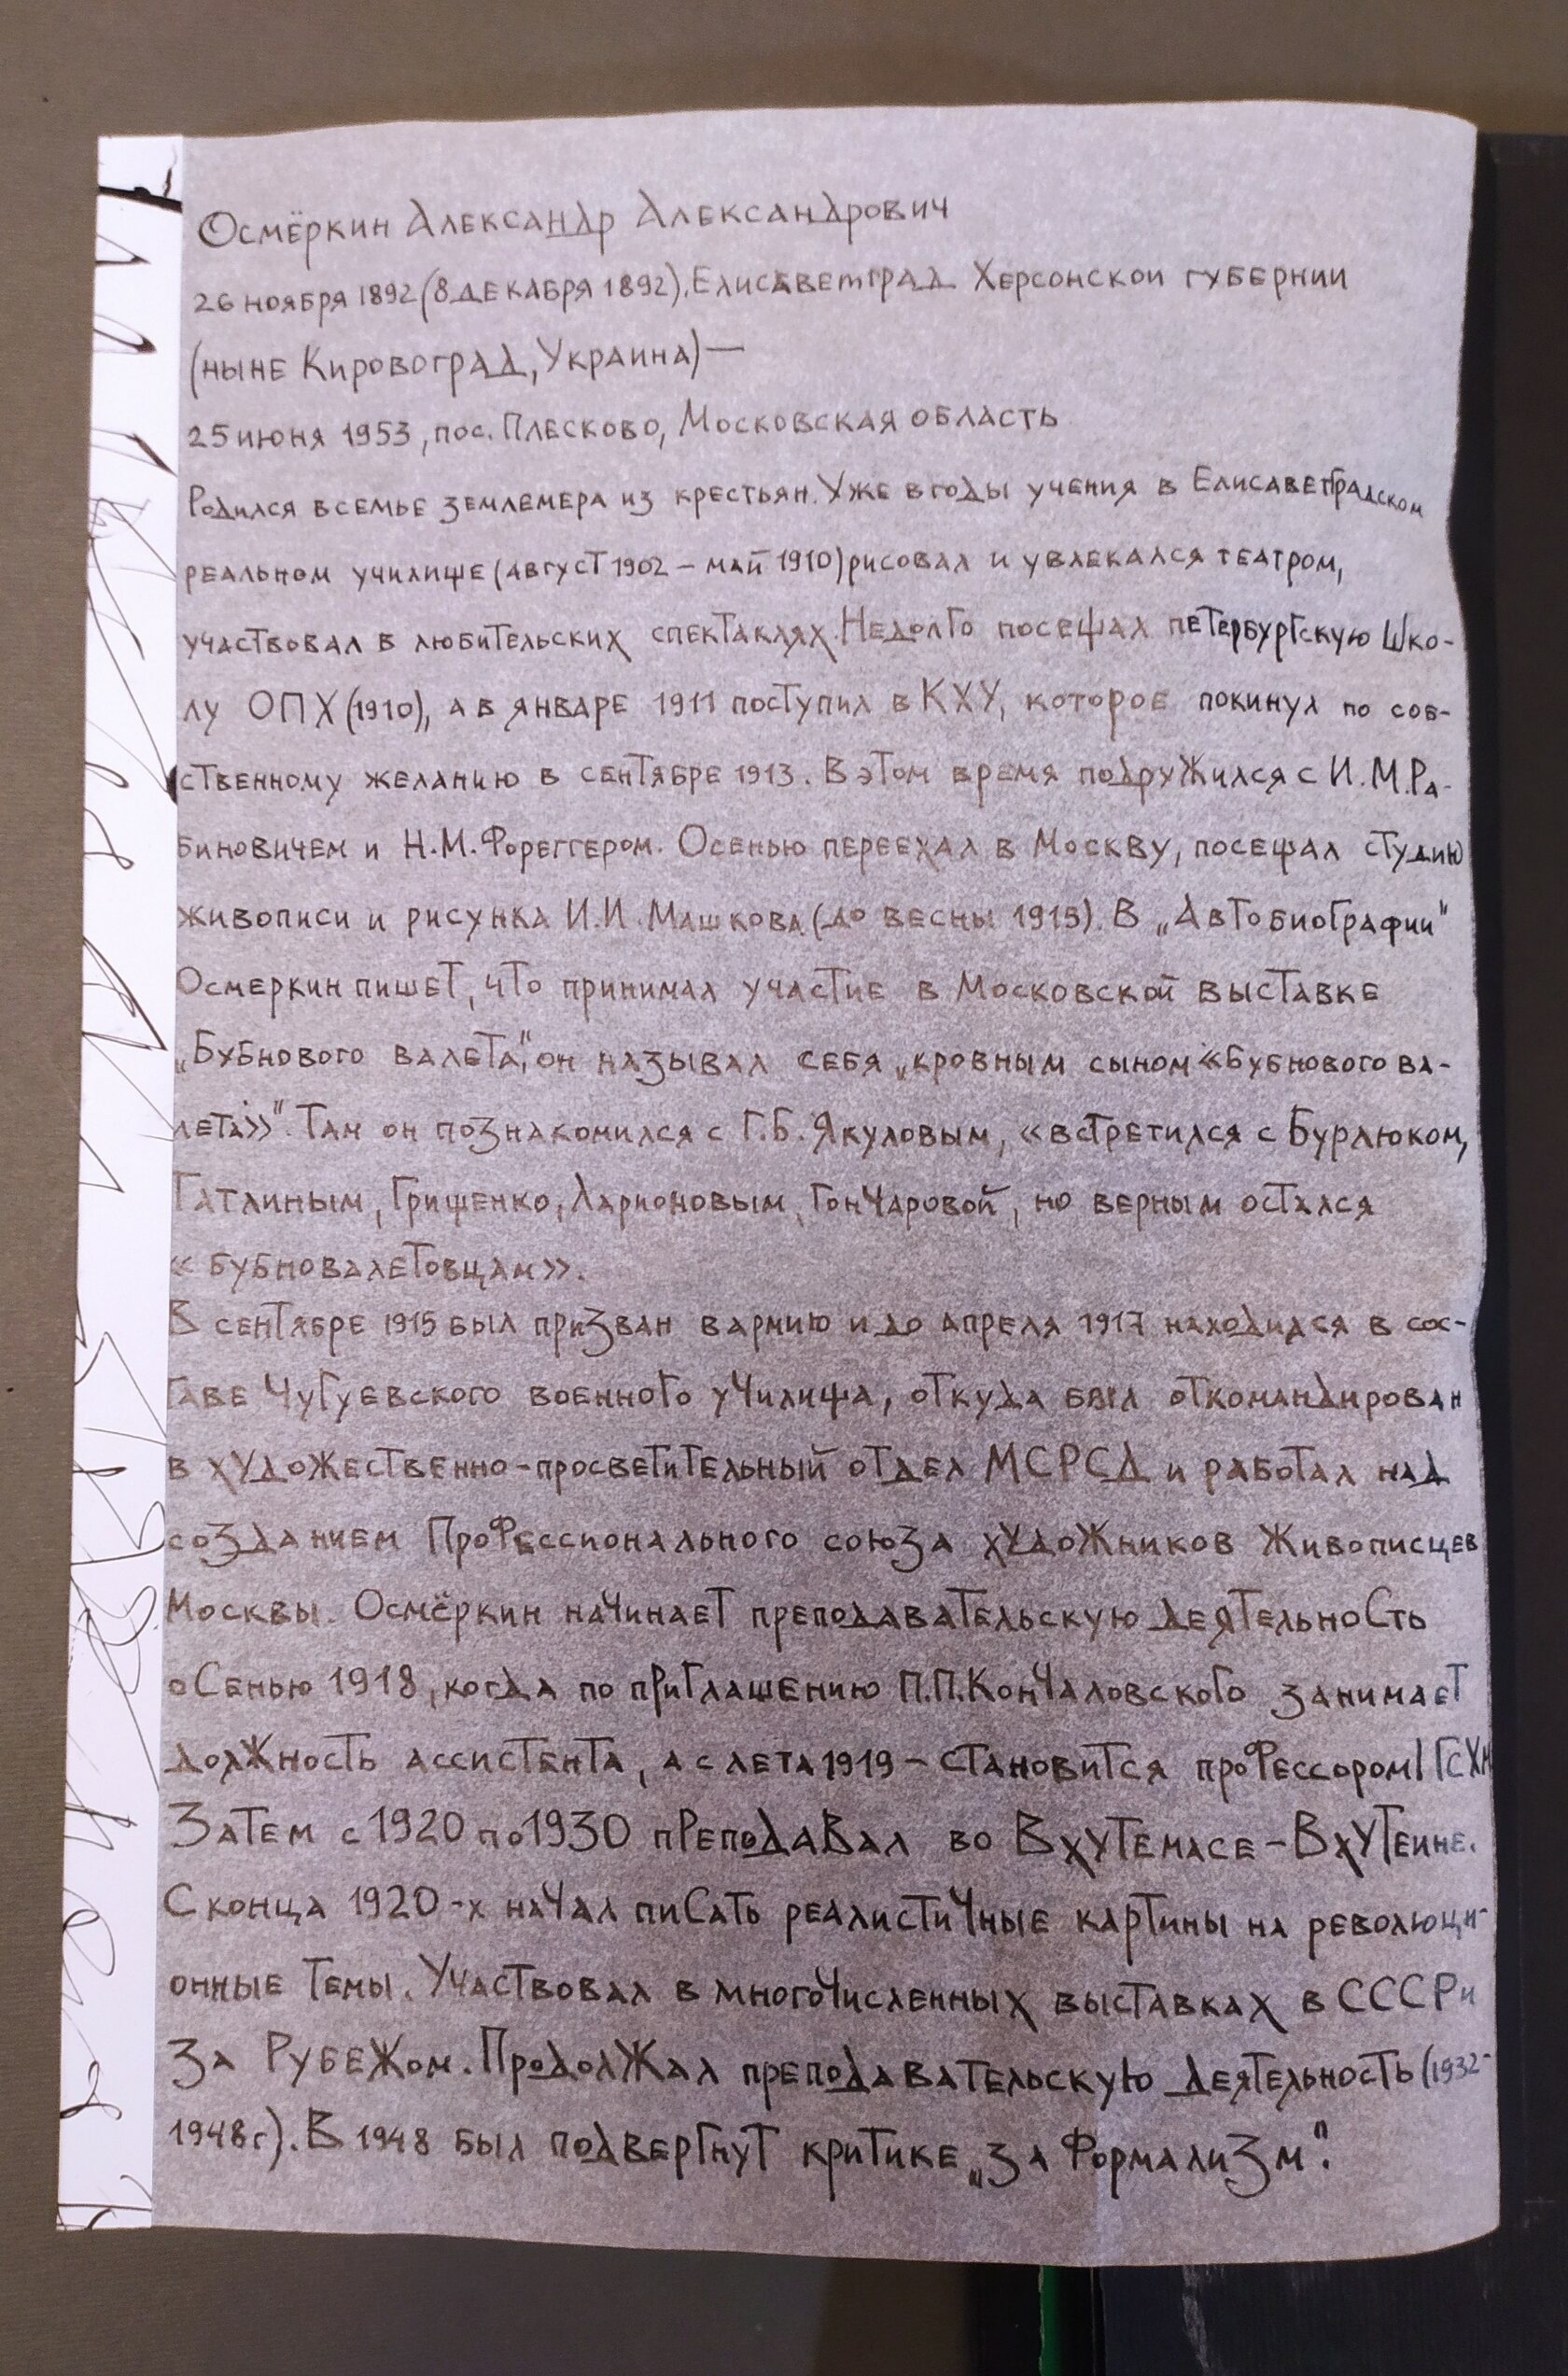 Осмёркин Александр Александрович
26 ноября 1892 (8 декабря 1892), Елисаветград Херсонской губернии
(ныне Кировоград, Украина) —
25 июня 1953, пос. Плесково, Московская область
Родился в семье землемера из крестьян. Уже в годы учения в Елисаветградском
реальном училище (август 1902 – май 1910) рисовал и увлекался театром,
участвовал в любительских спектаклях. Недолго посещал петербургскую Шко-
лу ОПХ (1910), а в январе 1911 поступил в КХУ, которое покинул по соб-
ственному желанию в сентябре 1913. В этом время подружился с И.М. Ра-
биновичем и Н.М. Фореггером. Осенью переехал в Москву, посещал студию
живописи и рисунка И.И. Машкова (до весны 1915). В „Автобиографии"
Осмеркин пишет, что принимал участие в Московской выставке
„Бубнового валета", он называл себя „кровным сыном «Бубнового ва-
лета»". Там он познакомился с Г.Б. Якуловым, «встретился с Бурлюком,
Татлиным, Грищенко, Ларионовым, Гончаровой, но верным остался
«бубновалетовцам».
В сентябре 1915 был призван в армию и до апреля 1917 находился в сос-
таве Чугуевского военного училища, откуда был откомандирован
в художественно-просветительный отдел МСРСД и работал над
созданием Профессионального союза художников живописцев
Москвы. Осмёркин начинает преподавательскую деятельность
осенью 1918, когда по приглашению П.П. Кончаловского занимает
должность ассистента, а с лета 1919 – становится профессором I ГСХМ
Затем с 1920 по 1930 преподавал во Вхутемасе – Вхутеине.
С конца 1920-х начал писать реалистичные картины на революци-
онные темы. Участвовал в многочисленных выставках в СССР и
за рубежом. Продолжал преподавательскую деятельность (1932-
1948г). В 1948 был подвергнут критике „за формализм".